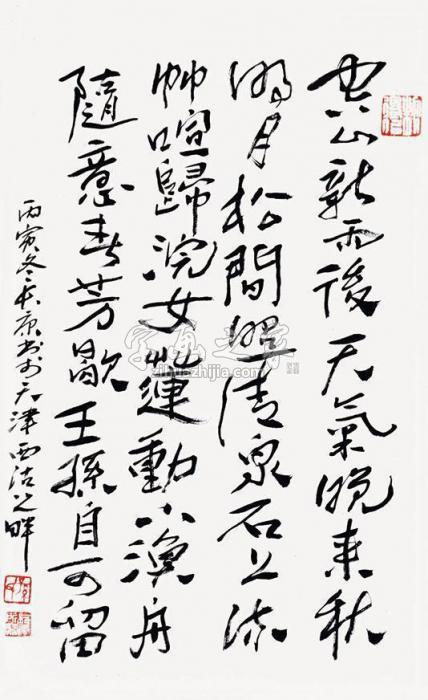 空山新雨後天氣晚来秋
明月松間照清泉石上流
竹喧歸浣女蓮動下漁舟
隨意春芳歇王孫自可留
丙寅冬书於天津西沽之畔
字画之家
zihuazhijia.com